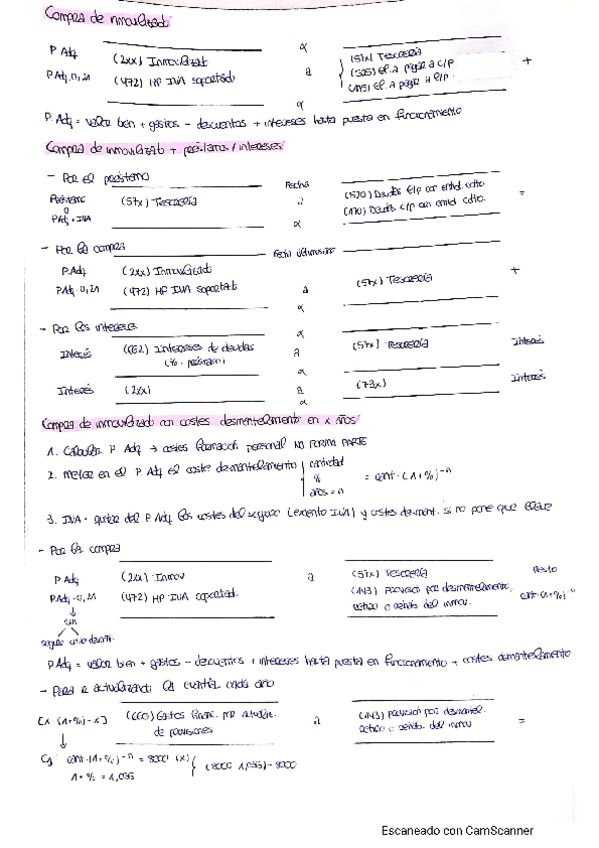 Compra de inmovilizado
P. Adq (2xx) Inmovilizado a (57x) Tesorería +
P. Adq · 0,21 (472) HP IVA soportado (525) Ef. a pagar a c/p
(175) Ef. a pagar a l/p.
P. Adq = valor bien + gastos - descuentos + intereses hasta puesta en funcionamiento
Compra de inmovilizado + préstamos / intereses
- Por el préstamo
Fecha
Préstamo (57x) Tesorería a (520) Deudas c/p con entid. cdto.
P. Adq + IVA (170) Deudas l/p con entid. cdto. =
- Por la compra
P. Adq (2xx) Inmovilizado a (57x) Tesorería +
P. Adq · 0,21 (472) HP IVA soportado
- Por los intereses
Interés (662) Intereses de deudas a (57x) Tesorería Interés
(% · préstamo)
Interés (2xx) a (73x) Interés
Compra de inmovilizado con costes desmantelamiento en x años
1. Calcular P. Adq → costes formación personal NO FORMA PARTE
2. Meter en el P. Adq el coste desmantelamiento cantidad
% = cant · (1+%)⁻ⁿ
años = n
3. IVA = quitar del P. Adq los costes del seguro (exento IVA) y costes desmant. si no pone que
- Por la compra
P. Adq (2xx) Inmov a (57x) Tesorería Resto
P. Adq · 0,21 (472) HP IVA soportado. (143) Provisión por desmantelamiento, cant · (1+%)⁻ⁿ
↓ retiro o rehab. del inmov.
sin
seguro
P. Adq = valor bien + gastos - descuentos + intereses hasta puesta en funcionamiento + costes desmantelamiento
- Para ir actualizando la cuantía cada año
[x · (1+%) - x] (660) Gastos financ. por actualiz. a (143) Provisión por desmantel. =
↓ de provisiones retiro o rehab. del inmov
Ej: cant · (1+%)⁻ⁿ = 8000 (x) } (8000 · 1,035) - 8000
1 + % = 1,035
Escaneado con CamScanner